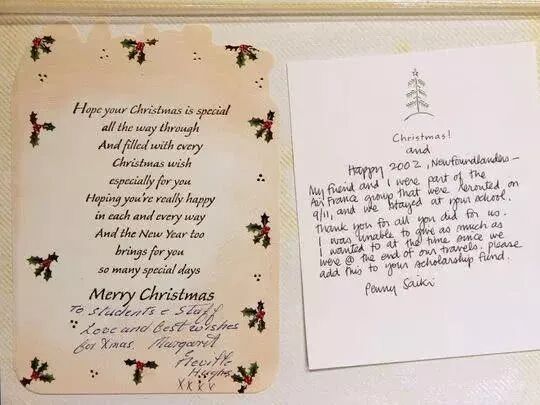 Hope your Christmas is special
all the way through
And filled with every
Christmas wish
especially for you
Hoping you're really happy
in each and every way
And the New Year too
brings for you
so many special days
Merry Christmas
To students & Staff
Love and Best wishes
for Xmas Margaret
& Neville
Hughes
xxxx
Christmas!
and
Happy 2002, Newfoundlanders –
My friend and I were part of the
Air France group that were rerouted on
9/11, and we stayed at your school.
Thank you for all you did for us.
I was unable to give as much as
I wanted to at the time since we
were @ the end of our travels. Please
add this to your scholarship fund.
Penny Saiki